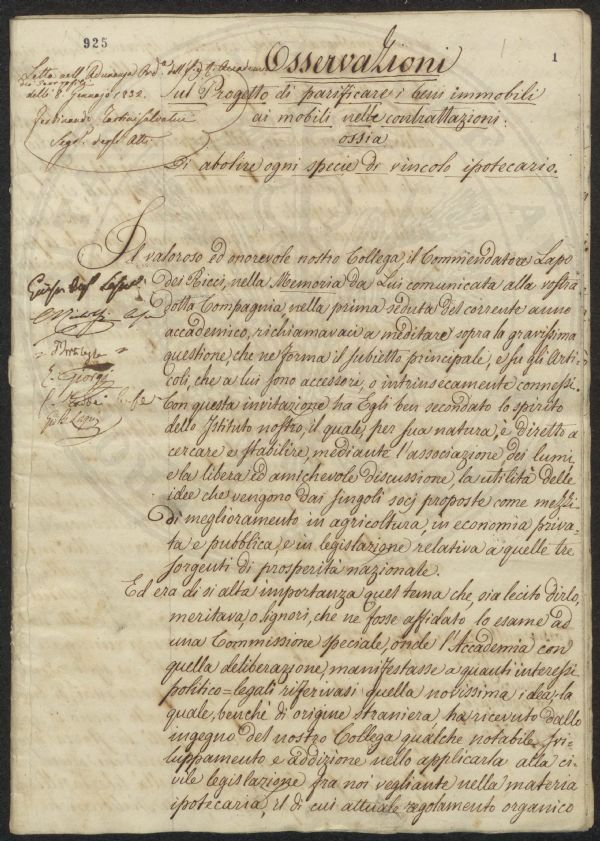 925
1
Letta nell'Adunanza Ord.ª dell' I. e R. Accademia
dei Georgofili
dello 8 Gennajo 1832.
Ferdinando Tartini Salvatici
Seg.º degli Atti
Osservazioni
sul Progetto di parificare i beni immobili
ai mobili nelle contrattazioni.
ossia
di abolire ogni specie di vincolo ipotecario.
Il valoroso ed onorevole nostro Collega, il Commendatore Lapo
dei Ricci, nella Memoria da Lui comunicata alla vostra
dotta Compagnia nella prima seduta del corrente anno
accademico, richiamavaci a meditare sopra la gravissima
questione, che ne forma il subietto principale, e su gli Arti-
coli, che a lui sono accessorj, o intrinsecamente connessi.
Con questa invitazione ha Egli ben secondato lo spirito
dello Istituto nostro, il quale, per sua natura, è diretto a
cercare e stabilire, mediante l'associazione dei lumi
e la libera ed amichevole discussione, la utilità delle
idee che vengono dai singoli socj proposte come mezzi
di meglioramento in agricoltura, in economia priva-
ta e pubblica, e in legislazione relativa a quelle tre
sorgenti di prosperità nazionale.
Ed era di sì alta importanza quel tema che, sia lecito dirlo,
meritava, o Signori, che ne fosse affidato lo esame ad
una Commissione speciale, onde l'Accademia con
quella deliberazione, manifestasse a quanti interessi
politico=legali riferivasi quella novissima idea, la
quale, benchè di origine straniera ha ricevuto dallo
ingegno del nostro Collega qualche notabile svi-
luppamento e addizione nello applicarla alla ci-
vile legislazione fra noi vegliante nella materia
ipotecaria, il di cui attuale regolamento organico
E. Giorgi